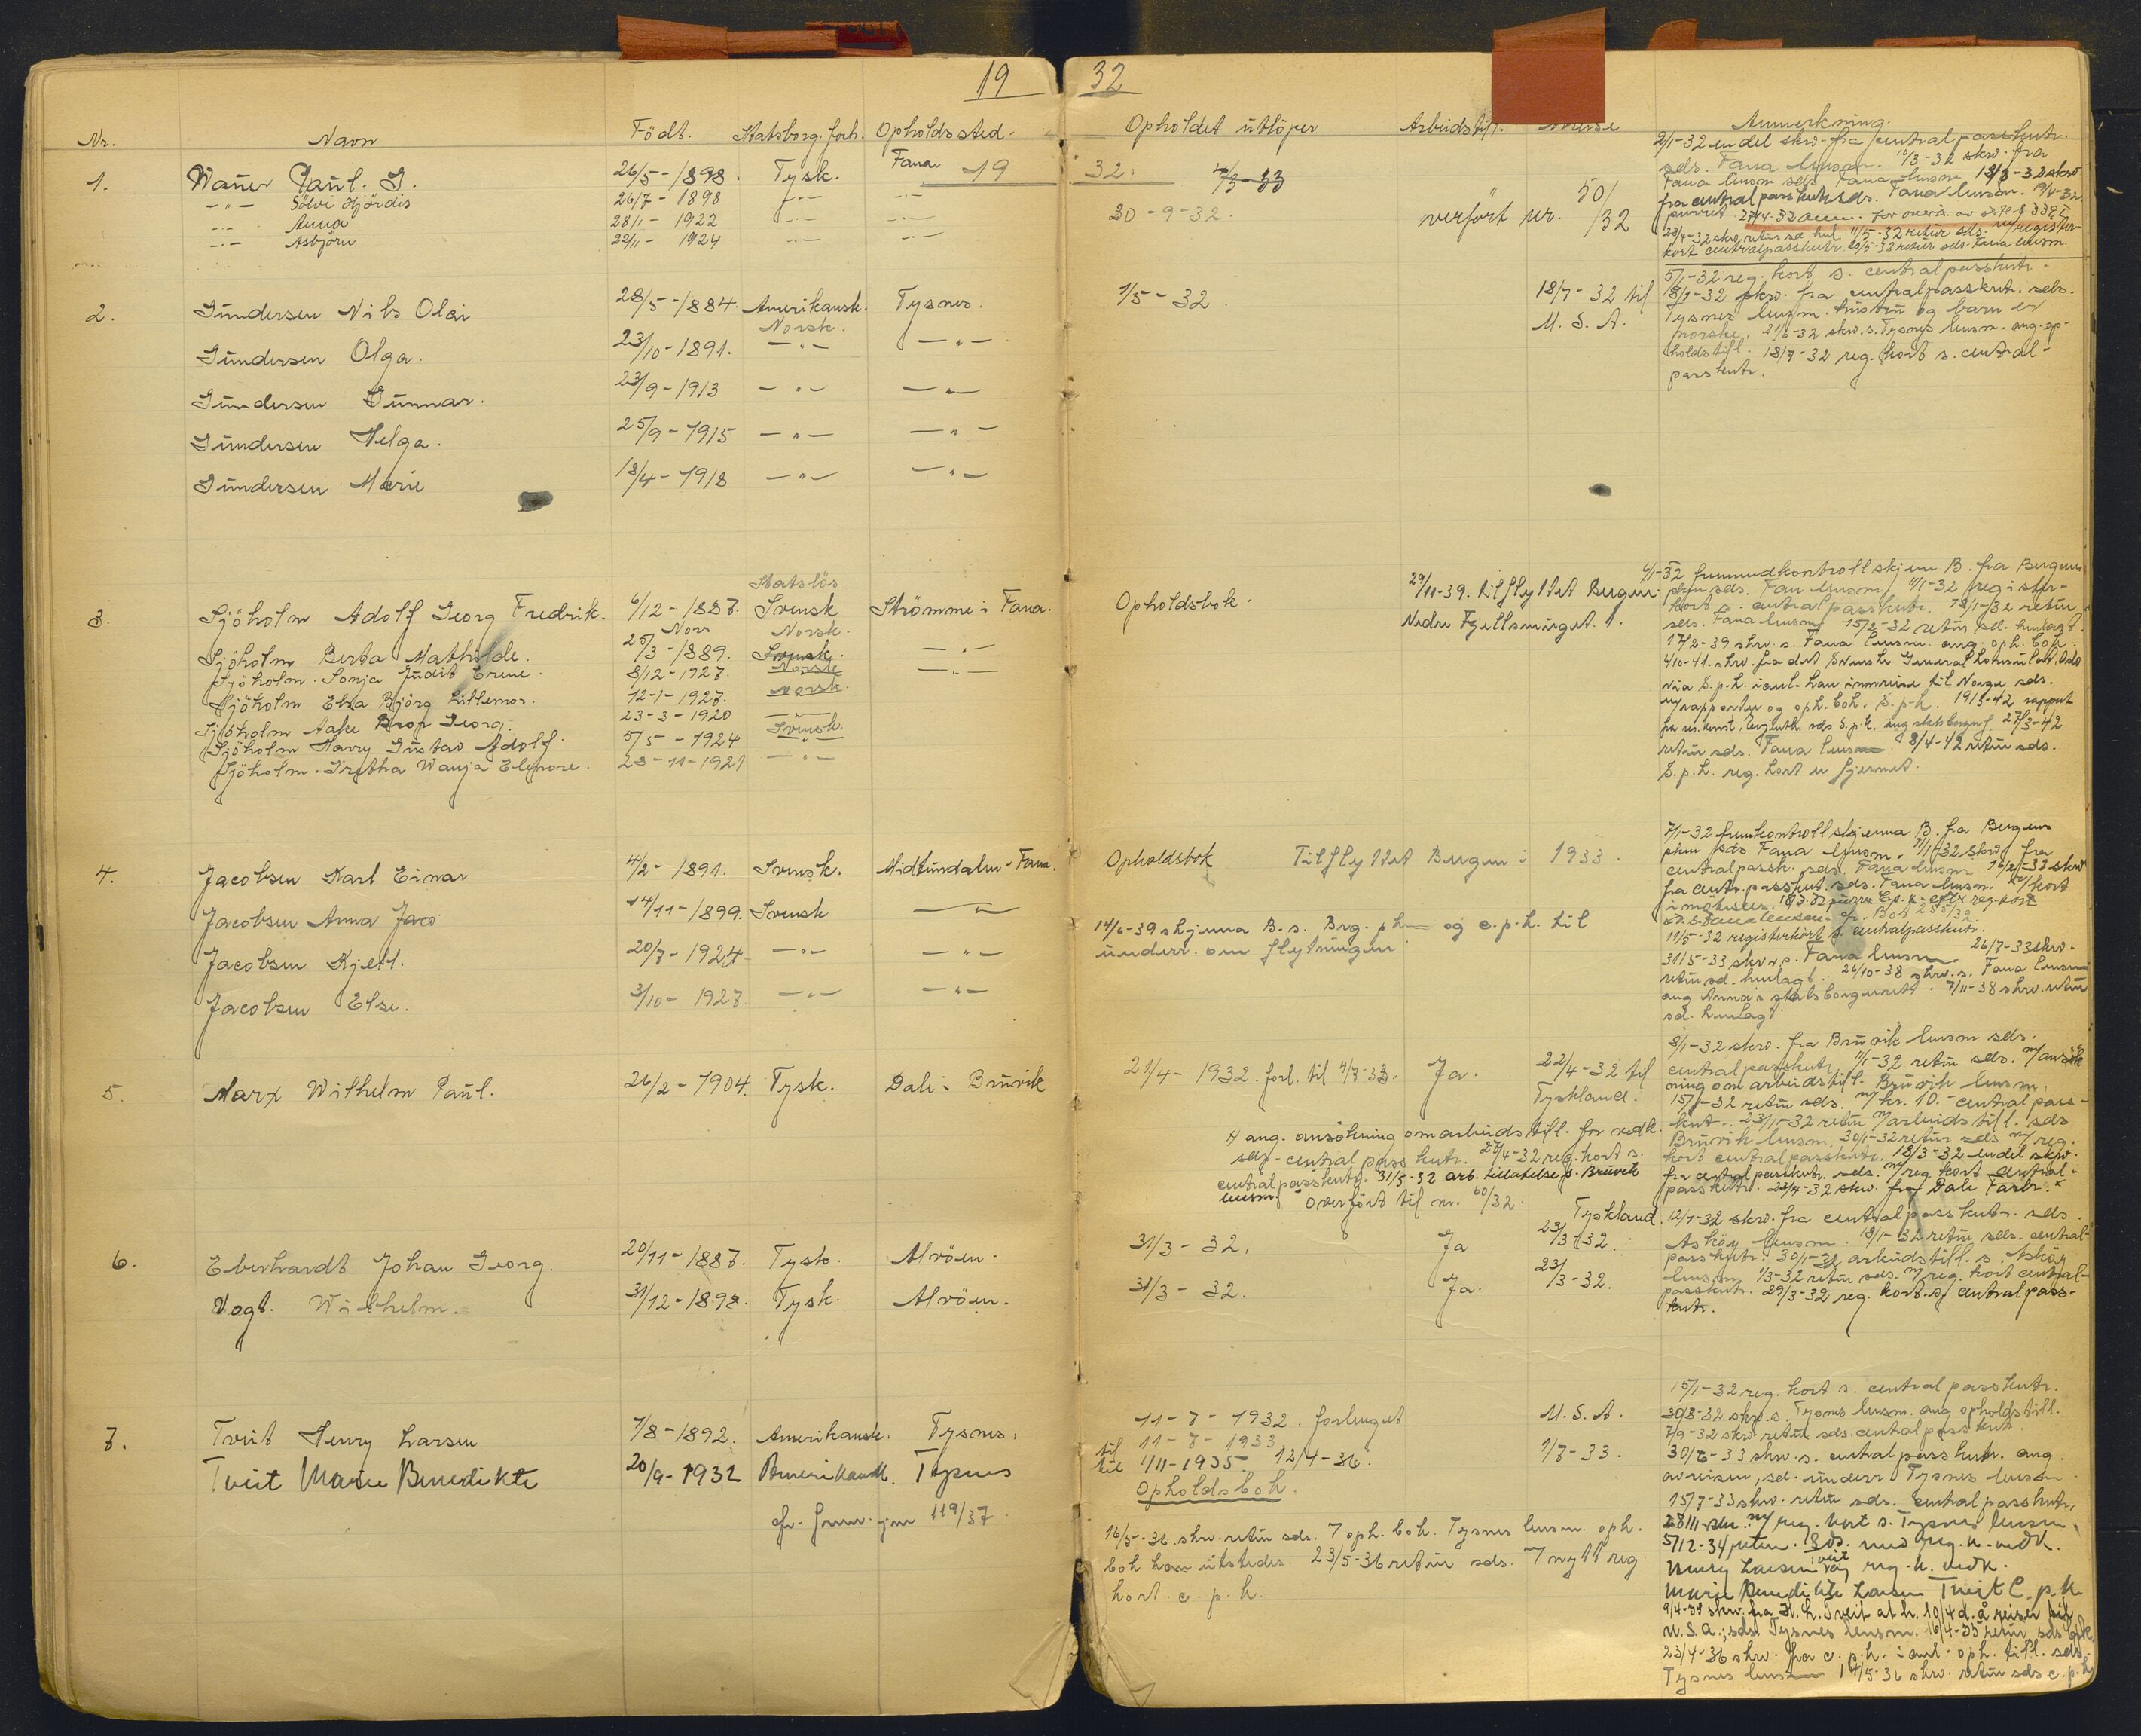 19 32
Nr. Navn Födt. Statsborg.forh. Opholdssted. Opholdet utlöper Arbeidstill. Anmerkning.
1. Waner Paul. G. 26/5-1898. Tysk. Fana 19 32.
-"- Sölvi Hjördis 26/7-1898 -"- -"- 30-9-32. verfört nr. 50/32
-"- Anna 28/1-1922 -"- -"-
-"- Asbjörn 22/11-1924 -"- -"-
2/1-32 en del skrv. fra centralpasskntr.
sds. Fana lensm. 10/3-32 skrv. fra
Fana lensm sds
fra centralpasskntr sds. Fana lensm. 19/4-32
kort centralpasskntr. 20/5-32 retur sds. Fana lensm
2. Gundersen Nils Olai 28/5-1884. Amerikansk. Tysnes. 1/5-32. 18/7-32 til
Norsk. U. S. A.
Gundersen Olga. 23/10-1891. -"- -"-
Gundersen Gunnar. 23/9-1913 -"- -"-
Gundersen Helga. 25/9-1915 -"- -"-
Gundersen Marie 18/4-1918 -"- -"-
5/1-32 reg. kort s. centralpasskntr.
8/1-32 skrv. fra centralpasskntr. sds.
Tysnes lensm. hustru og barn er
norske. 21/6-32 skrv. s. Tysnes lensm. ang. op-
holdstill. 18/7-32 reg. kort s. central-
passkntr.
Statslös
3. Sjöholm Adolf Georg Fredrik. 6/12-1887. Svensk Strömme i Fana. Opholdsbok. 29/11-39. tilflyttet Bergen
Nedre Fjellsmuget. 1.
Norsk.
Sjöholm Berta Mathilde. 25/3-1889. Svensk. -"-
Sjöholm. Sonja Judit Erene. 8/12-1927. Norsk -"-
Sjöholm Elsa Björg Lillemor. 12-1-1927. Norsk.
Sjöholm Aake Georg. 23-3-1920
Sjöholm Harry Gustav Adolf. 5/5-1924 Svensk.
Sjöholm. Gretha Wanja Elenore. 23-11-1921 -"-
4/1-32 fremmedkontrollskjem B. fra Bergen
pkm sds. Fana lensm 11/1-32 register-
kort s. centralpasskntr. 13/1-32 retur
sds. Fana lensm 15/2-32 retur sd. henlagt.
17/2-39 skrv. s. Fana lensm. ang. oph. bok.
4/10-41. skrv. fra det Svenske Generalkonsulat. Oslo
via S.p.k. innreise til Norge sds.
rapporter og oph. bok. S.p.k. 19/3-42 rapport
27/3-42
retur sds. Fana lensm 8/4-42 retur sds.
S.p.k. reg. kort er fjernet.
4. Jacobsen Karl Einar 4/2-1891. Svensk. Midtundalen - Fana. Opholdsbok Tilflyttet Bergen i 1933.
Jacobsen Anna 14/11-1899. Svensk -"-
Jacobsen Kjell. 20/7-1924 -"- -"-
Jacobsen Else. 3/10-1927 -"- -"-
14/6-39 skjema B. s. Brg. pkm og c.p.k. til
underr. om flytningen
7/1-32 fremkontrollskjema B. fra Bergen
pkm sds Fana lensm. 11/1-32 skrv. fra
centralpassk. sds. Fana lensm 16/2-32 skrv
fra centr. passknt. sds. Fana lensm.
11/5-32 registerkort s. centralpasskntr.
31/5-33 skrv. s. Fana lensm 26/7-33 skrv.
retur sd. henlagt. 26/10-38 skrv. s. Fana lensm
ang Anna's statsborgerrett. 7/11-38 skrv. retur
sd. henlagt
5. Marx Wilhelm Paul. 26/2-1904. Tysk. Dale i Bruvik 21/4-1932. forl. til 4/7-33. Ja. 22/4-32 til
Tyskland.
x ang. ansökning om arbeidstill. for vedk.
sds - centralpasskntr. 28/4-32 reg. kort s.
centralpasskntr. 31/5-32 arb. tillatelse s. Bruvik
lensm. Overfört til nr. 60/32.
8/1-32 skrv. fra Bruvik lensm sds.
centralpasskntr. 11/1-32 retur sds. m/ansök-
ning om arbeidstill. Bruvik lensm.
15/1-32 retur sds. m/ kr. 10.- centralpass-
kntr. 23/1-32 retur m/arbeidstill. sds
Bruvik lensm. 30/1-32 retur sds m/ reg.
kort centralpasskntr. 18/3-32 endel skrv.
fra centralpasskntr. sds. m/ reg. kort central-
passkntr. 23/4-32 skrv. fra Dale Fabr. x
6. Eberhardt Johan Georg. 20/11-1887. Tysk. Alvöen. 31/3-32. Ja Tyskland. 23/3-32.
Vogt. Wilhelm. 31/12-1898. Tysk. Alvöen. 31/3-32. Ja. 23/3-32.
12/1-32 skrv. fra centralpasskntr. sds.
Asköy lensm. 18/1-32 retur sds. central-
passkntr. 30/1-32 arbeidstill. s. Asköy
lensm 1/3-32 retur sds. m/ reg. kort central-
passkntr. 29/3-32 reg. kort. s. centralpass-
kntr.
7. Tveit Henry Larsen 7/8-1892. Amerikansk. Tysnes. 11-7-1932. forlenget U. S. A.
til 11-7-1933
Tveit Marie Benedikte 20/9-1932 Amerikansk. Tysnes til 1/11-1935. 12/4-36. 1/7-33.
Opholdsbok.
cfr. frem. jnr 119/37
16/5-36. skrv. retur sds. 7 oph. bok. Tysnes lensm. oph.
bok kan utstedes. 23/5-36 retur sds. 7 nytt reg.
kort. c. p. k.
15/1-32 reg. kort s. centralpasskntr.
30/8-32 skrv. s. Tysnes lensm. ang opholdstill.
7/9-32 skrv. retur sds. centalpasskntr.
30/6-33 skrv. s. centralpasskntr. ang.
avreisen, sd. underr Tysnes lensm
15/7-33 skrv. retur sds. centralpasskntr.
m/ reg. kort s. Tysnes lensm.
5/12-34 retur. Sds. med reg. k. vedk.
Henry Larsen Tveit og reg. k. vedk.
Marie Benedikte Larsen Tveit C. p. k
9/4-34 skrv. fra H. L. Tveit at h. 10/4 d. å reiser til
U. S. A.; sds. Tysnes lensm. 16/4-35 retur sds
23/4-36 skrv. fra c. p. k. i anl. oph. till. sds.
Tysnes lensm 14/5-36 skrv. retur sds c. p. k